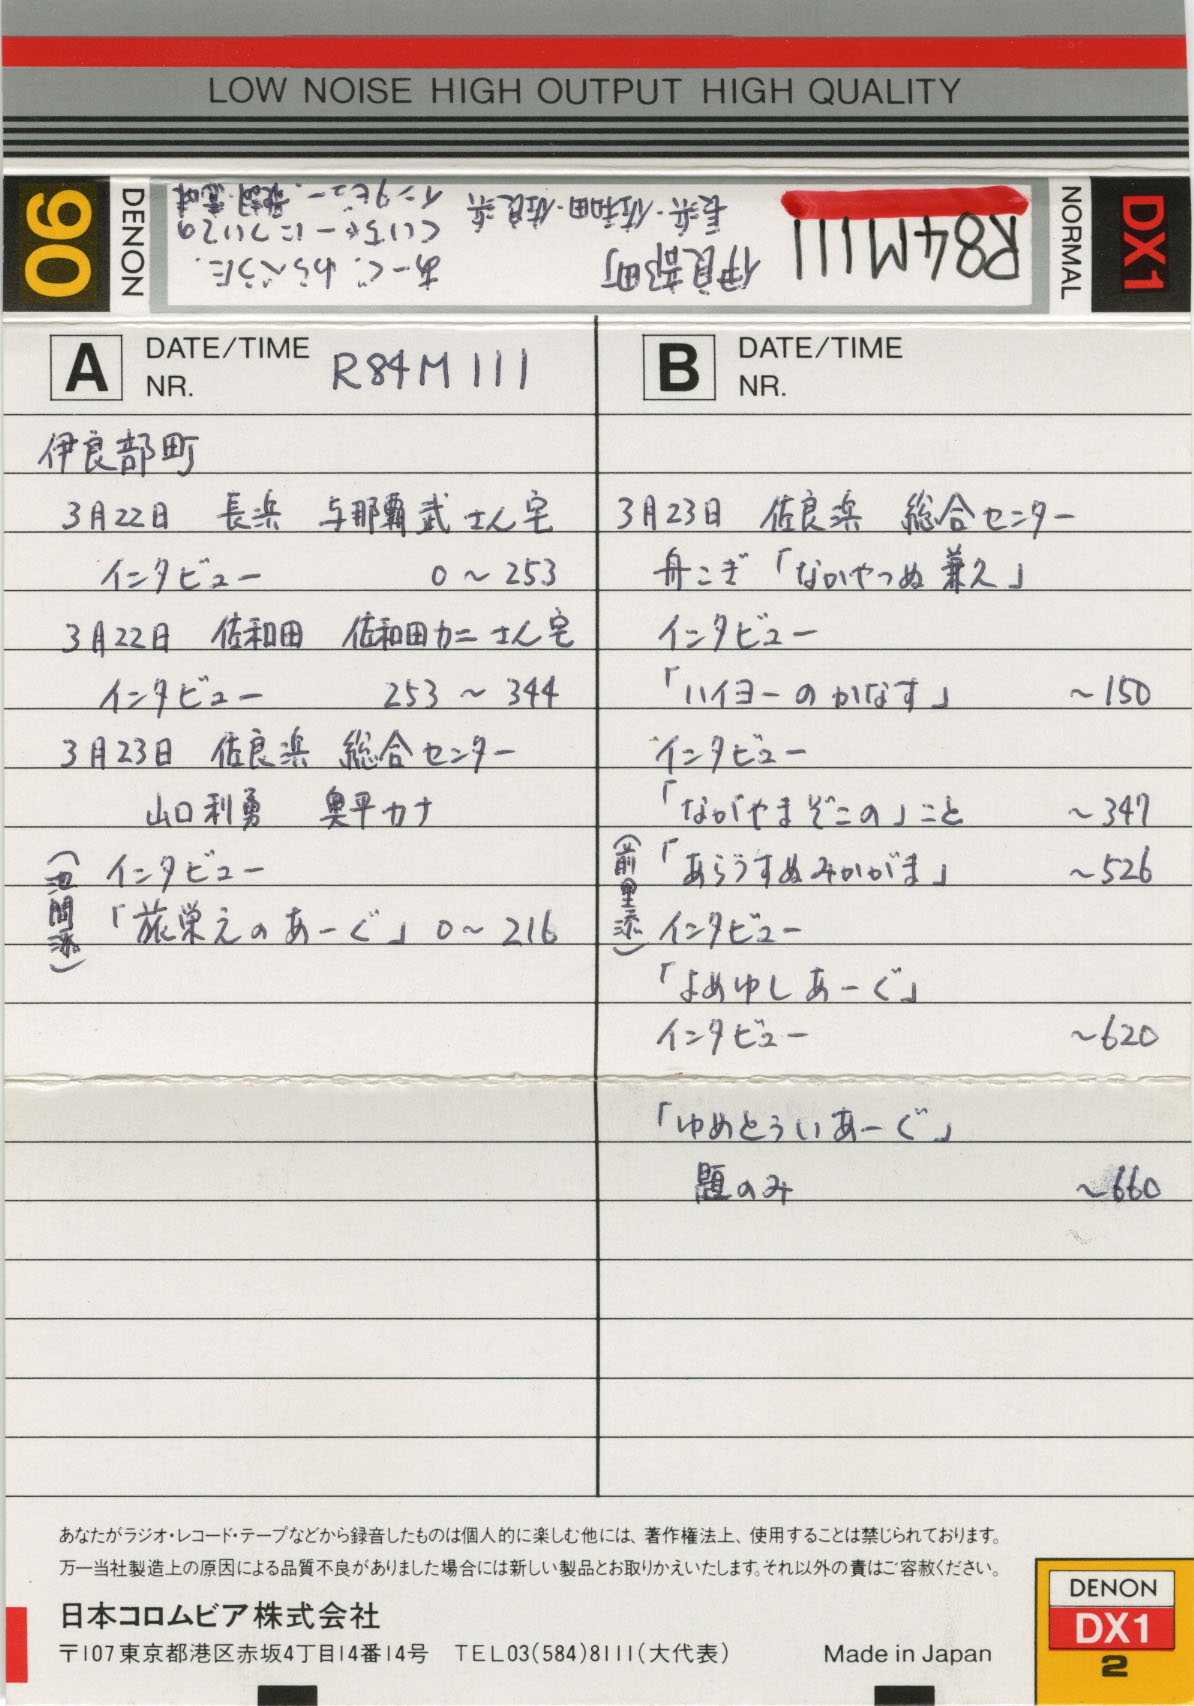 LOW NOISE HIGH OUTPUT HIGH QUALITY
90
DENON
R84M111
伊良部町
長浜・佐和田・佐良浜
あーぐ、わらべうた、
くいちゃーについての
インタビュー、歌詞、意味
NORMAL
DX1
A DATE/TIME
NR.
R84M111
伊良部町
3月22日 長浜 与那覇武さん宅
インタビュー 0～253
3月22日 佐和田 佐和田カニさん宅
インタビュー 253～344
3月23日 佐良浜 総合センター
山口利勇 奥平カナ
(池間添)
インタビュー
「旅栄えのあーぐ」 0～216
B DATE/TIME
NR.
3月23日 佐良浜 総合センター
舟こぎ「なかやつぬ兼久」
インタビュー
「ハイヨーのかなす」 ～150
インタビュー
「ながやまぞこの」こと ～347
(前里添)
「あらうすぬみかがま」 ～526
インタビュー
「よめゆしあーぐ」
インタビュー ～620
「ゆめとぅいあーぐ」
題のみ ～660
あなたがラジオ・レコード・テープなどから録音したものは個人的に楽しむ他には、著作権法上、使用することは禁じられております。
万一当社製造上の原因による品質不良がありました場合には新しい製品とお取りかえいたします。それ以外の責はご容赦ください。
日本コロムビア株式会社
〒107東京都港区赤坂4丁目14番14号 TEL03(584)8111(大代表)
Made in Japan
DENON
DX1
2